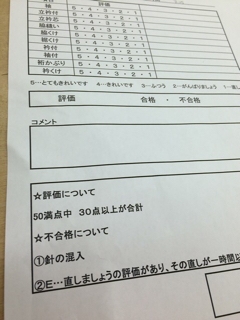 評価
袖 5・4・3・2・1
立衿付 5・4・3・2・1
立衿芯 5・4・3・2・1
脇縫い 5・4・3・2・1
脇くけ 5・4・3・2・1
裾くけ 5・4・3・2・1
衿付 5・4・3・2・1
袖付 5・4・3・2・1
衿かぶり 5・4・3・2・1
衿くけ 5・4・3・2・1
5…とてもきれいです 4…きれいです 3…ふつう 2…がんばりましょう 1…直し
評価 合格 ・ 不合格
コメント
☆評価について
50満点中 30点以上が合計
☆不合格について
①針の混入
②E…直しましょうの評価があり、その直しが一時間以